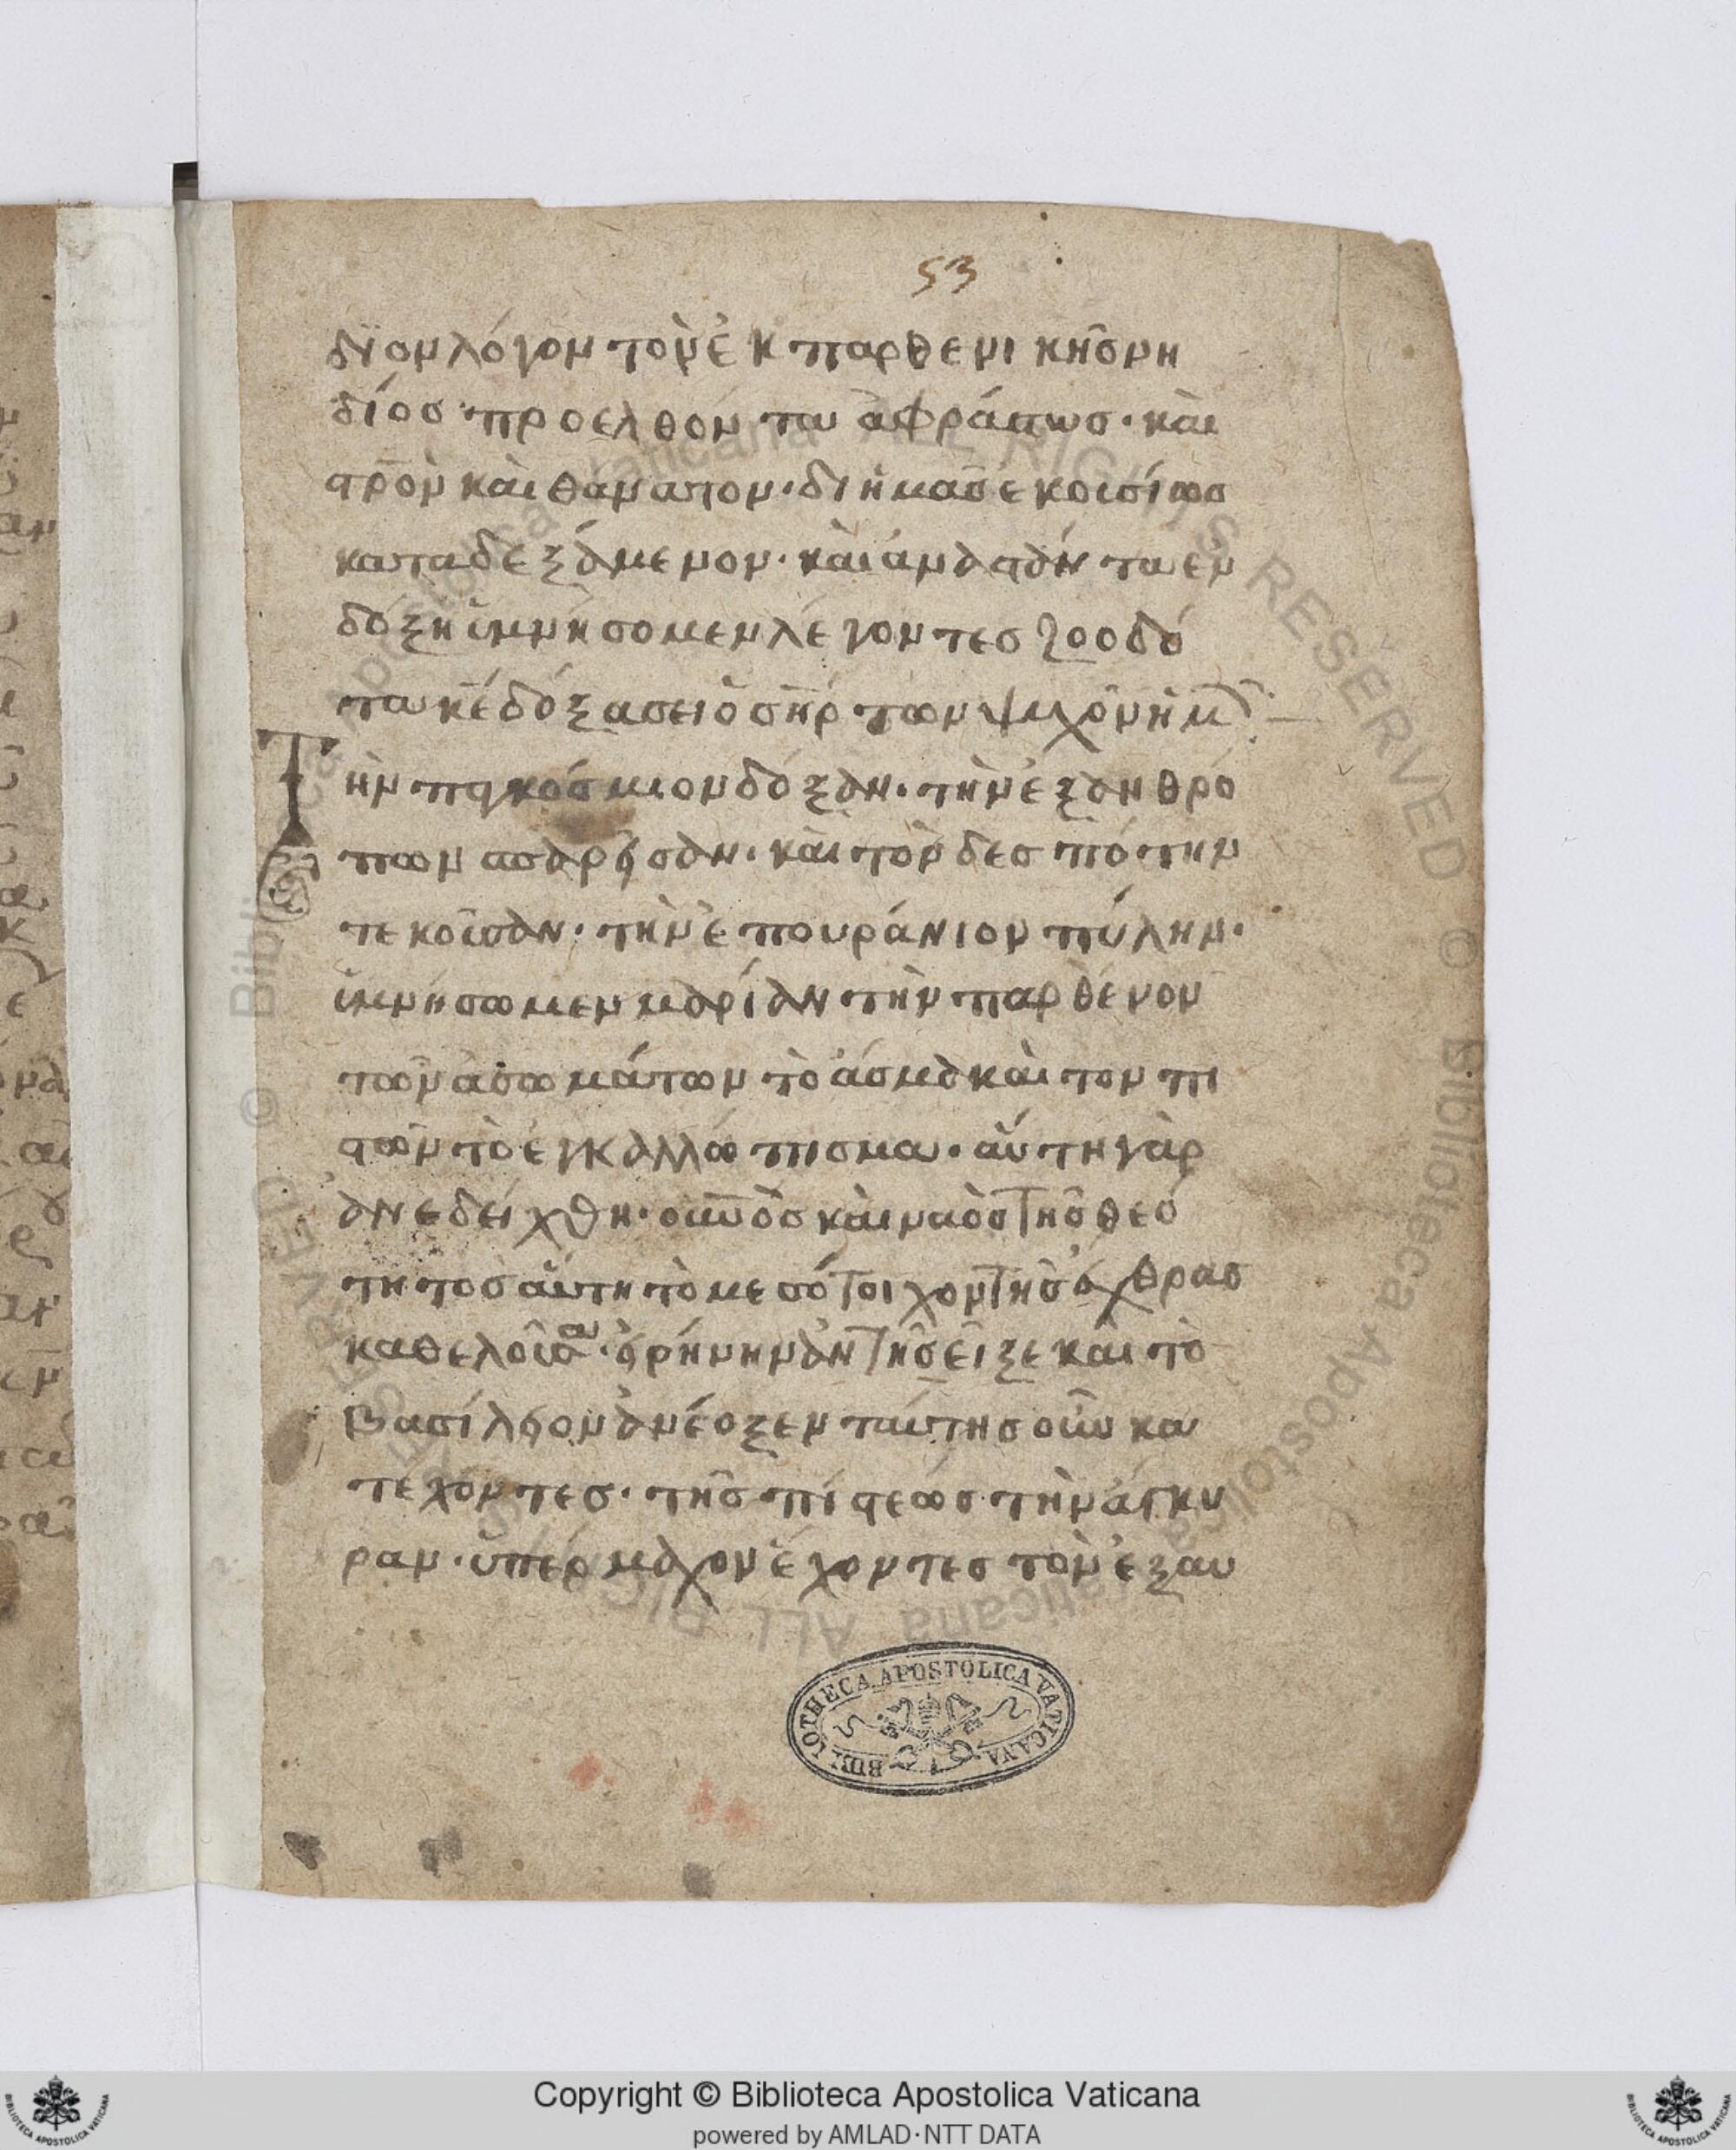 53
διον λόγον τὸν ἐκ παρθενικῆς νη
δίος προελθόντα ἀφράστως· καὶ
στρὸν καὶ θάνατον· δι ἡμᾶς ἑκοισίως
καταδεξάμενον· καὶ ἀναστάντα ἐν
δόξη ὑμνήσομεν λέγοντες ζοοδό
τα κε δόξα σει ὁ σηρ των ψυχὸν ἡμ
Τὴν παγκόσμιον δόξαν· τὴν ἐξ ανθρό
πων σπαρεῖσαν· καὶ τὸν δεσπότην
τεκοῦσαν· τὴν ἐπουράνιον πύλην·
ὑμνήσωμεν μαρίαν τὴν παρθένον
των ἀσωμάτων τὸ ἄσμα καὶ τον πι
στῶν τὸ ἐγκαλλώπισμα· αὕτη γὰρ
ανεδείχθη· οὐνὸς καὶ ναὸς τῆς θεό
τητος αὕτη τὸ μεσότοιχον τῆς ἔχθρας
καθελοῦσα· εἰρήνην ἀντῆσεῖξε καὶ τὸ
βασίλειον ἀνέοξεν ταύτης οὖν κα
τεχόντες· τῆς πίστεως τὴν ἄγκυ
ραν· ὑπέρμαχον ἔχοντες τὸν ἐξ αυ
BIBLIOTHECA APOSTOLICA VATICANA
Copyright © Biblioteca Apostolica Vaticana
powered by AMLAD·NTT DATA